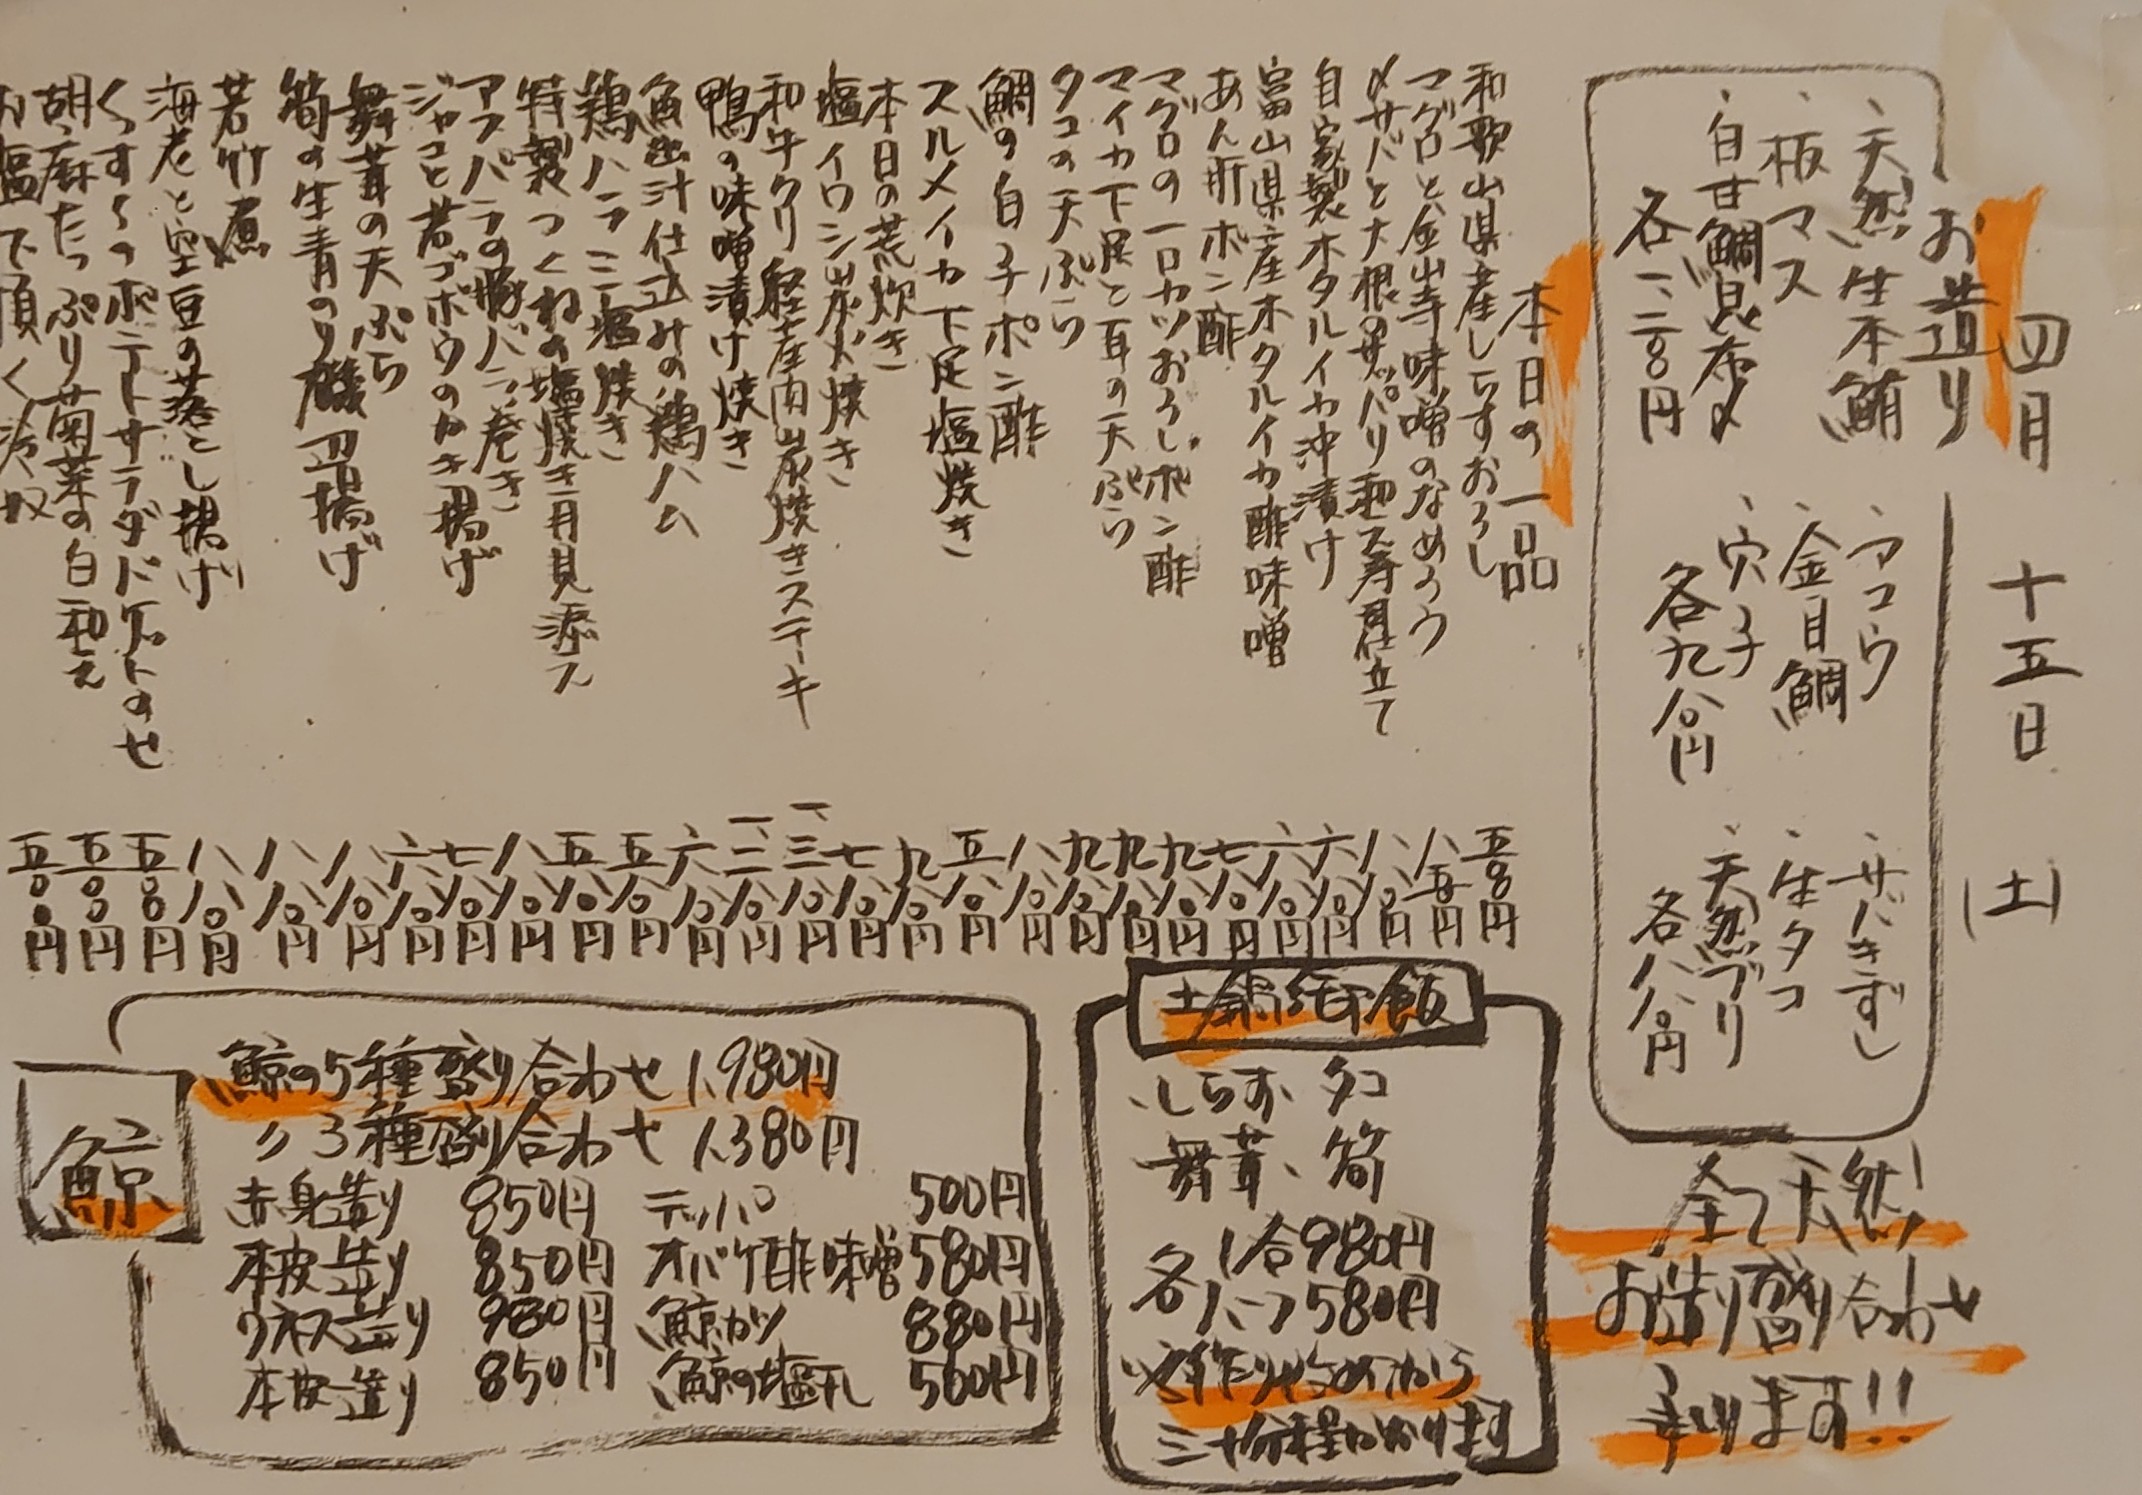 四月 十五日 (土)
お造り
、天然生本鮪
、板マス
、白甘鯛昆布〆
各一、二八〇円
、マコウ
、金目鯛
、穴子
各九八〇円
、サバきずし
、生タコ
、天然ブリ
各八八〇円
全て天然!
お造り盛り合わせ
承ります!!
本日の一品
和歌山県産しらすおろし 五八〇円
マグロと金山寺味噌のなめろう 八五〇円
〆サバと大根のサッパリ和え寿司仕立て 八八〇円
自家製ホタルイカ沖漬け 六八〇円
富山県産ホタルイカ酢味噌 六八〇円
あん肝ポン酢 七八〇円
マグロの一口カツおろしポン酢 九八〇円
マイカ下足と耳の天ぷら 九八〇円
タコの天ぷら 九八〇円
鯛の白子ポン酢 八八〇円
スルメイカ下足塩焼き 五八〇円
本日の荒炊き 九八〇円
塩イワシ炭火焼き 七八〇円
和牛クリ 炭焼きステーキ 一、三八〇円
鴨の味噌漬け焼き 一、二八〇円
魚出汁仕込みの鶏ハム 六八〇円
鶏ハラミ塩焼き 五八〇円
特製つくねの塩焼き月見添え 五八〇円
アスパラの豚バラ巻き 八八〇円
ジャコと若ゴボウのかき揚げ 七八〇円
舞茸の天ぷら 六八〇円
筍の生青のり磯辺揚げ 八八〇円
若竹煮 八八〇円
海老と空豆の落とし揚げ 八八〇円
くずくずポテトサラダドケットのせ 五八〇円
胡麻たっぷり菊菜の白和え 五八〇円
お塩で頂く冷奴 五八〇円
土鍋御飯
、しらす、タコ
、舞茸、筍
各 1合980円
ハーフ580円
※作り始めてから
三十分程かかります
鯨
鯨の5種盛り合わせ 1,980円
〃 3種盛り合わせ 1,380円
赤身造り 850円 テッパ 500円
本皮造り 850円 オバケ酢味噌 580円
ウネス造り 980円 鯨カツ 880円
本皮造り 850円 鯨の塩干し 500円